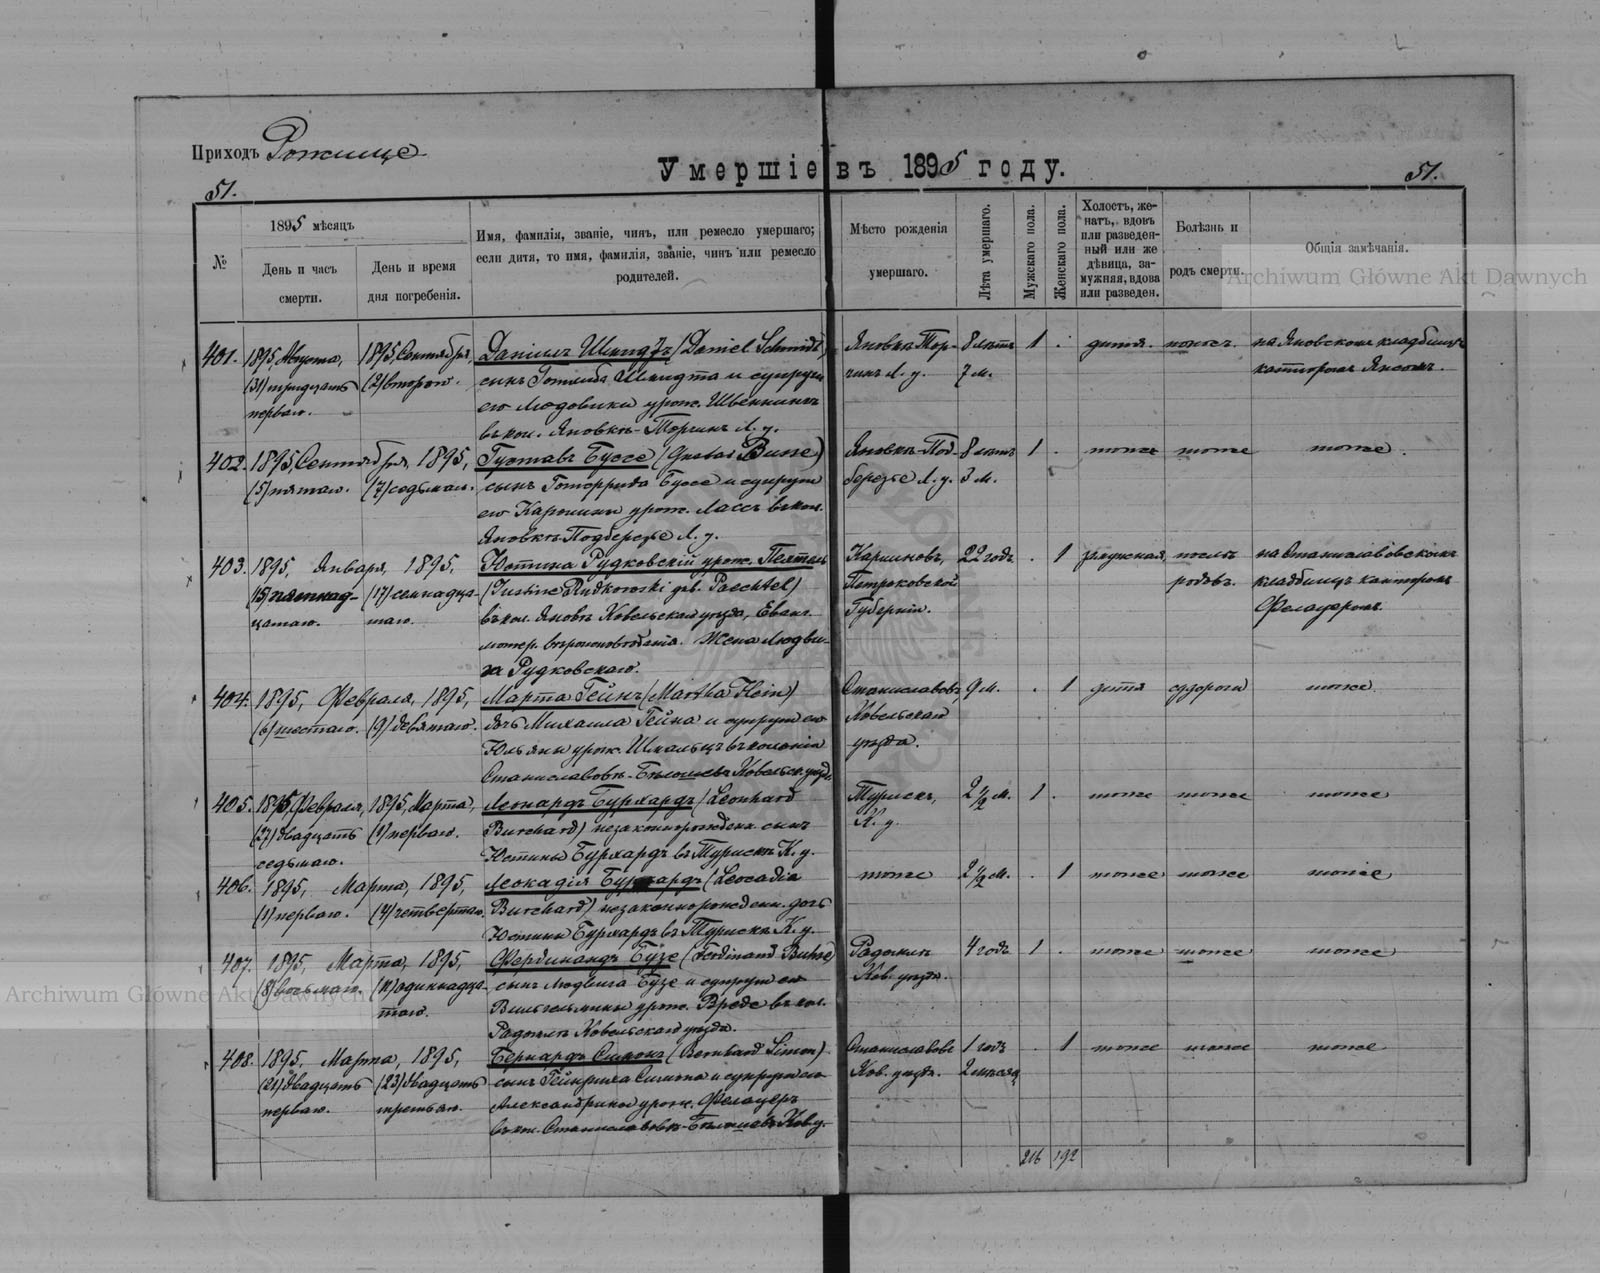 Приходъ Рожище
Умершіе въ 1895 году.
51.
51.
№
1895 мѣсяцъ
День и часъ смерти.
День и время дня погребенія.
Имя, фамилія, званіе, чинъ, или ремесло умершаго; если дитя, то имя, фамилія, званіе, чинъ или ремесло родителей.
Мѣсто рожденія умершаго.
Лѣта умершаго.
Мужскаго пола.
Женскаго пола.
Холостъ, женатъ, вдовъ или разведенный или же дѣвица, замужняя, вдова или разведен.
Болѣзнь и родъ смерти.
Общія замѣчанія.
Archiwum Główne Akt Dawnych
401. 1895, Августа, 1895, Сентября, Даніилъ Шмидтъ (Daniel Schmidt) Яновка Тор- 8 лѣтъ 1 . дитя. тоже. на Яновскомъ кладбищѣ
(31) тридцать (2) второго. сынъ Готлиба Шмидта и супруги чинъ Л. у. 7 м. канторомъ
перваго. его Людовики урож.
въ кол. Яновкѣ-Торчинъ Л. у.
402. 1895, Сентября, 1895, Густавъ Буссе (Gustav Busse) Яновкѣ-Под- 8 лѣтъ 1 . тоже тоже тоже.
(5) пятаго. (7) седьмаго. сынъ Готфрида Буссе и супруги березье Л. у. 3 м.
его Каролины урож. Лассъ въ кол.
Яновкѣ Подберезье Л. у.
403. 1895, Января, 1895, Юстина Рудковскій урож. Пехтель 22 годъ . 1 замужняя, послѣ на Станиславовскомъ
(15) пятнад- (17) семнадца- (Justine Rudkowski geb. Paechtel) Петроковской родовъ. кладбищѣ канторомъ
цатаго. таго. въ кол. Яновкѣ Ковельскаго уѣзда, Еванг. Губерніи. Фелауеромъ.
лютер. вѣроисповѣданія. Жена Людви-
га Рудковскаго.
404. 1895, Февраля, 1895, Марта Гейнъ (Martha Hein) Станиславовъ, 9 м. . 1 дитя судороги тоже
(6) шестаго. (9) девятаго. дочь Михаила Гейна и супруги его Ковельскаго
Юльяны урож. Шмальцъ въ колоніи уѣзда.
Станиславовкѣ-Бѣлошевъ Ковельск. уѣзд.
405. 1895, Февраля, 1895, Марта, Леонардъ Бурхардъ (Leonhard Турискъ, 2 1/2 м. 1 . тоже тоже тоже
(27) двадцать (1) перваго. Burchard) незаконнорожденн. сынъ К. у.
седьмаго. Юстины Бурхардъ въ Турискѣ К. у.
406. 1895, Марта, 1895, Леокадія Бурхардъ (Leocadia тоже 2 1/2 м. . 1 тоже тоже тоже
(1) перваго. (4) четвертаго. Burchard) незаконнорожденн. дочь
Юстины Бурхардъ въ Турискѣ К. у.
407. 1895, Марта, 1895, Фердинандъ Бузе (Ferdinand Buhse) 4 годъ 1 . тоже тоже тоже
(8) восьмаго. (11) одиннадца- сынъ Людвига Бузе и супруги его Ков. уѣзда.
таго. Вильгельмины урож. Вреде въ кол.
Ковельскаго уѣзда.
408. 1895, Марта, 1895, Бернардъ Симонъ (Bernhard Simon) Станиславовъ 1 годъ . 1 тоже тоже тоже
(21) двадцать (23) двадцать сынъ Гейнриха Симона и супруги его Ков. уѣзда. 2 мѣсяц
перваго. третьяго. Александрины урож. Фелауеръ
въ кол. Станиславовкѣ-Бѣлошевъ Ков. у.
216 192
Archiwum Główne Akt Dawnych